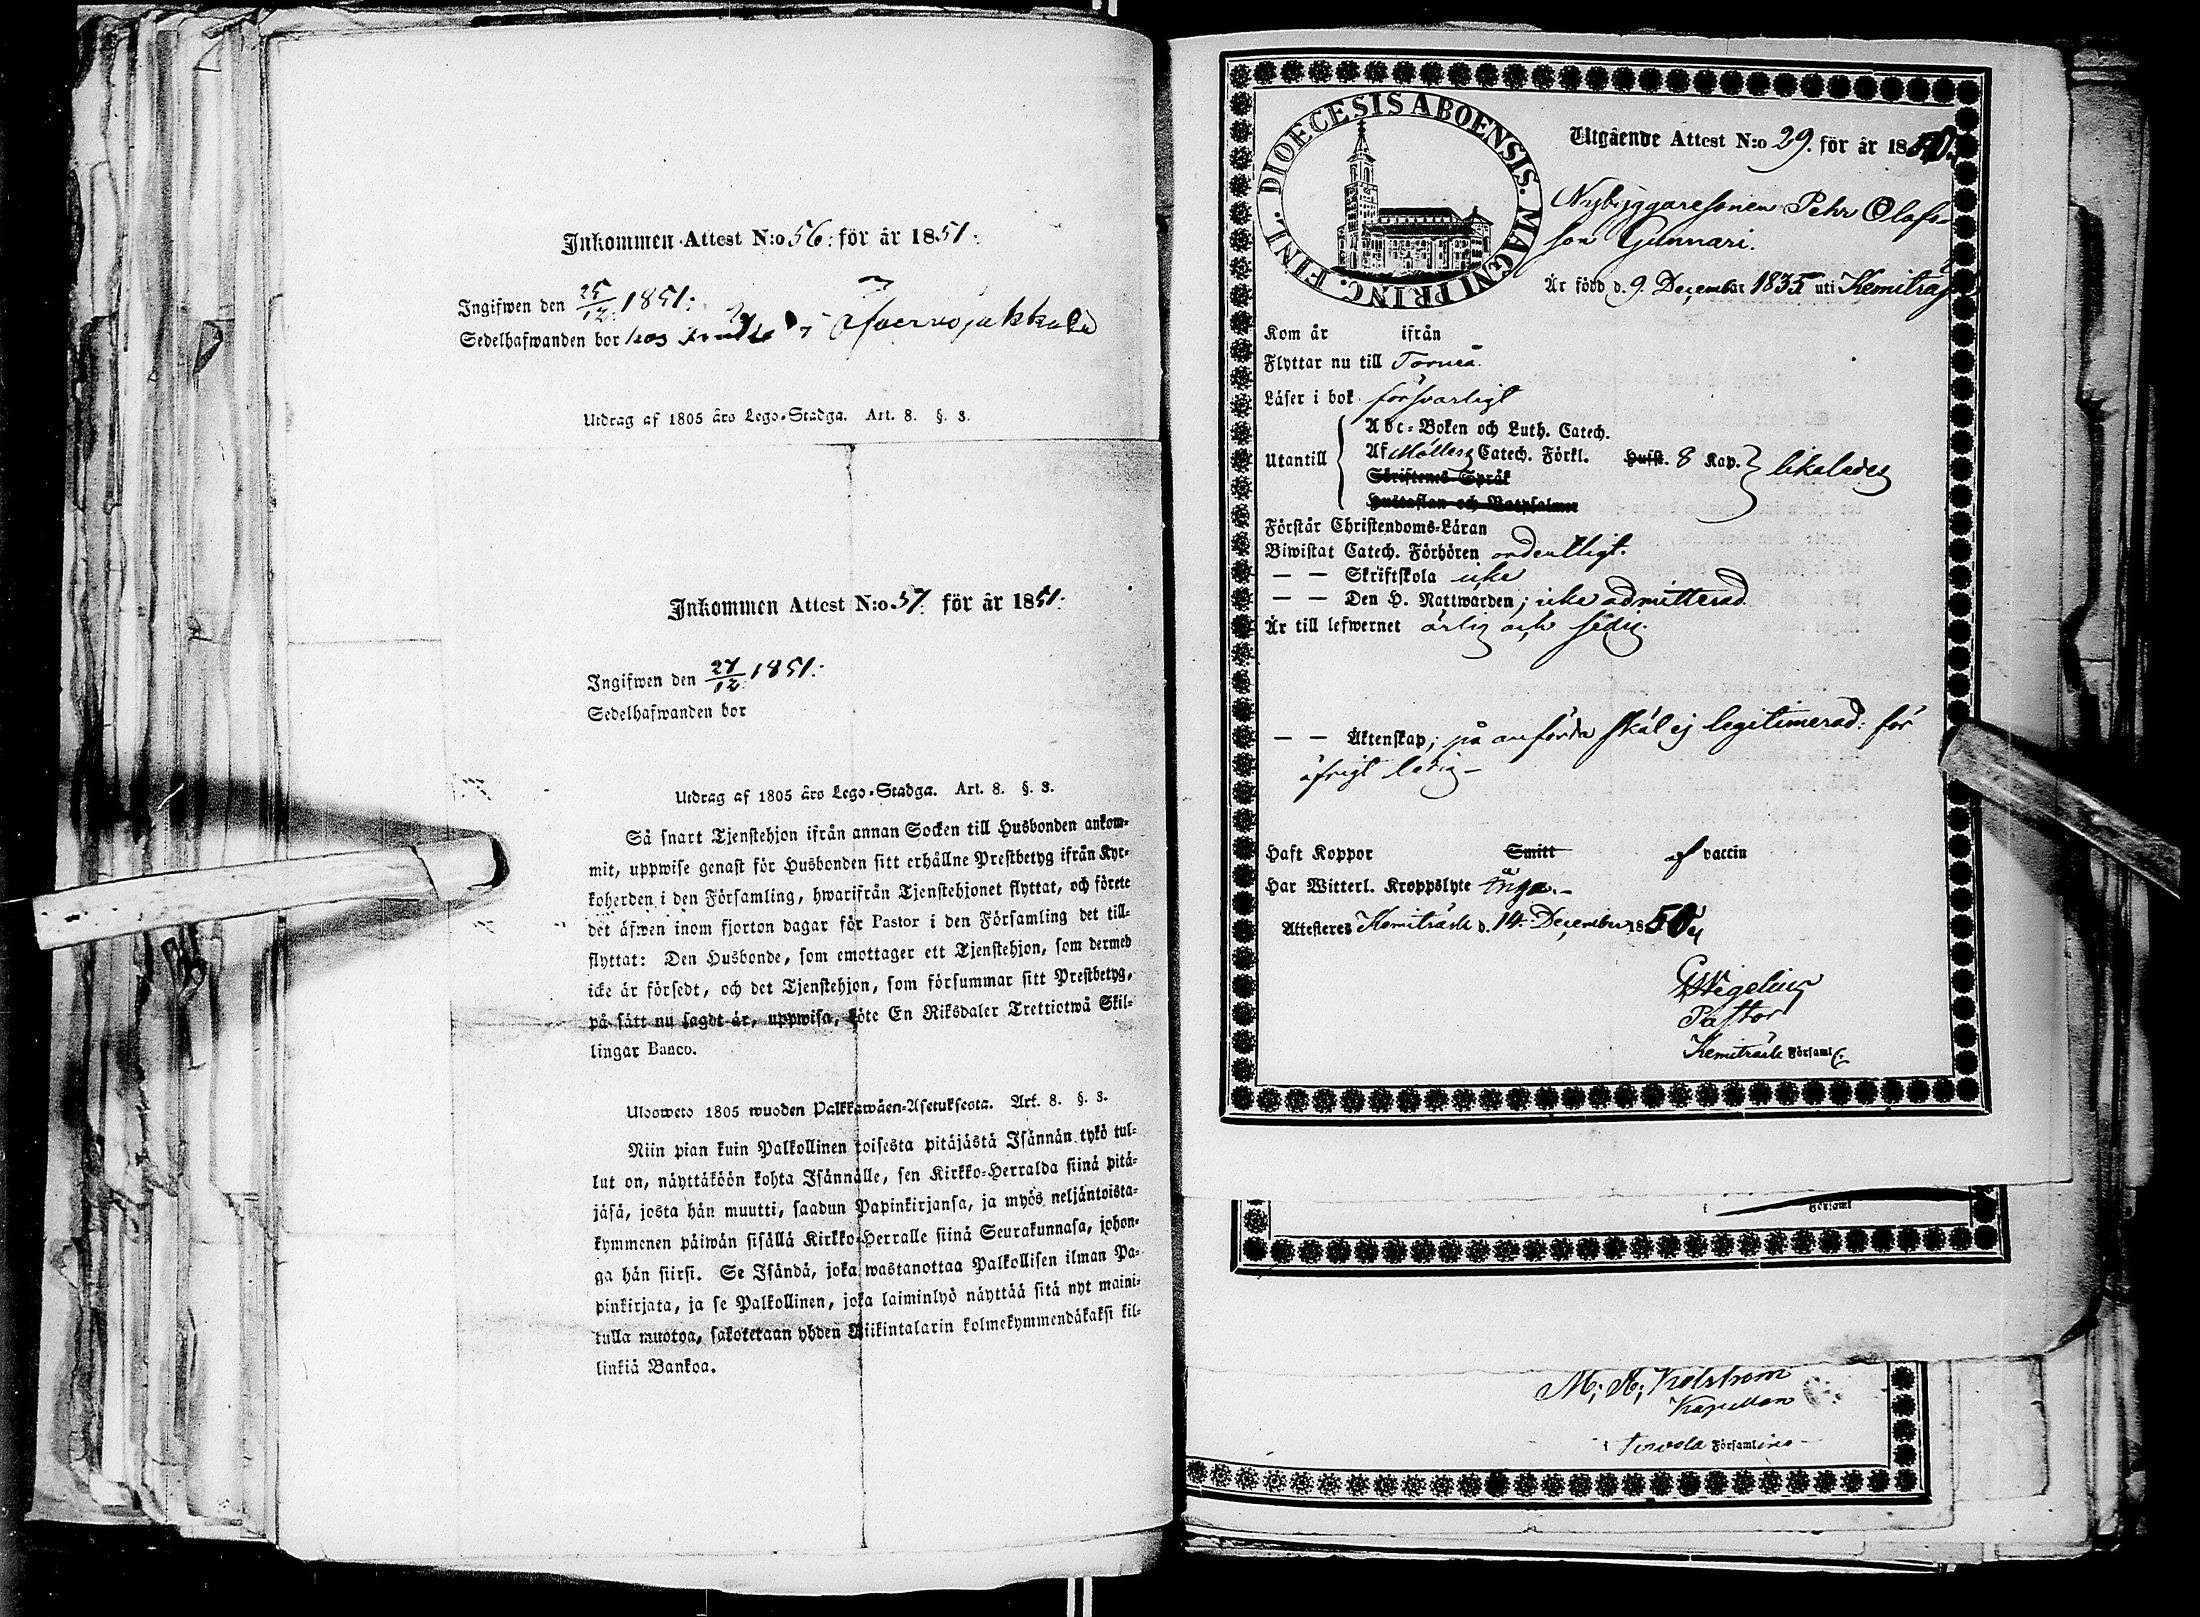 Inkommen Attest N:o 56: för år 1851:
Ingifwen den 25/12: 1851:
Sedelhafwanden bor hos
Utdrag af 1805 års Lego-Stadga. Art. 8. §. 3.
Inkommen Attest N:o 57. för år 1851:
Ingifwen den 27/12: 1851:
Sedelhafwanden bor
Utdrag af 1805 års Lego-Stadga. Art. 8. §. 3.
Så snart Tjenstehjon ifrån annan Socken till Husbonden ankom-
mit, uppwise genast för Husbonden sitt erhållne Prestbetyg ifrån Kyr-
koherden i den Församling, hwarifrån Tjenstehjonet flyttat, och förete
det äfwen inom fjorton dagar för Pastor i den Församling det till-
flyttat: Den Husbonde, som emottager ett Tjenstehjon, som dermed
icke är försedt, och det Tjenstehjon, som försummar sitt Prestbetyg,
på sätt nu sagdt är, uppwisa, böte En Riksdaler Trettiotwå Skil-
lingar Banco.
Ulosweto 1805 wuoden Palkkawäen-Asetuksesta. Art. 8. §. 3.
Niin pian kuin Palkollinen toisesta pitäjästä Isännän tykö tul-
lut on, näyttäköön kohta Isännälle, sen Kirkko-Herralda siinä pitä-
jäsä, josta hän muutti, saadun Papinkirjansa, ja myös neljäntoista-
kymmenen päiwän sisällä Kirkko-Herralle siinä Seurakunnasa, johon-
ga hän siirsi. Se Isändä, joka wastanottaa Palkollisen ilman Pa-
pinkirjata, ja se Palkollinen, joka laiminlyö näyttää sitä nyt maini-
tulla muotoa, sakotetaan yhden Riikintalarin kolmekymmendäkaksi kil-
linkiä Bankoa.
FINL. DIOECESIS ABOENSIS. MAGNI PRINC.
Utgående Attest N:o 29. för år 1850.
Nybyggaresonen Pehr Olofs-
son Gunnari.
Är född d. 9. December 1835 uti Kemiträsk
Kom år ifrån
Flyttar nu till Torneå.
Läser i bok försvarligt
Abc-Boken och Luth. Catech.
Utantill Af Möllers Catech. Förkl. Hust. 8 Kap. likaledes
Skriftenes Språk
Hustaflan och Botpsalmer
Förstår Christendoms-Läran
Biwistat Catech. Förhören ordentligt.
— — Skriftskola icke
— — Den H. Nattwarden; icke admitterad
Är till lefwernet ärlig och sedig.
— — Äktenskap; på anförda skäl ej legitimerad: för
öfrigt ledig –
Haft Koppor Smitt af vaccin
Har Witterl. Kroppslyte inga. –
Attesteres Kemiträsk d. 14. December 1850
Wegelius
Pastor
Kemiträsk Församl.
i Församl
M; A; Kolstrom
Kapellan
i Tervola Församling